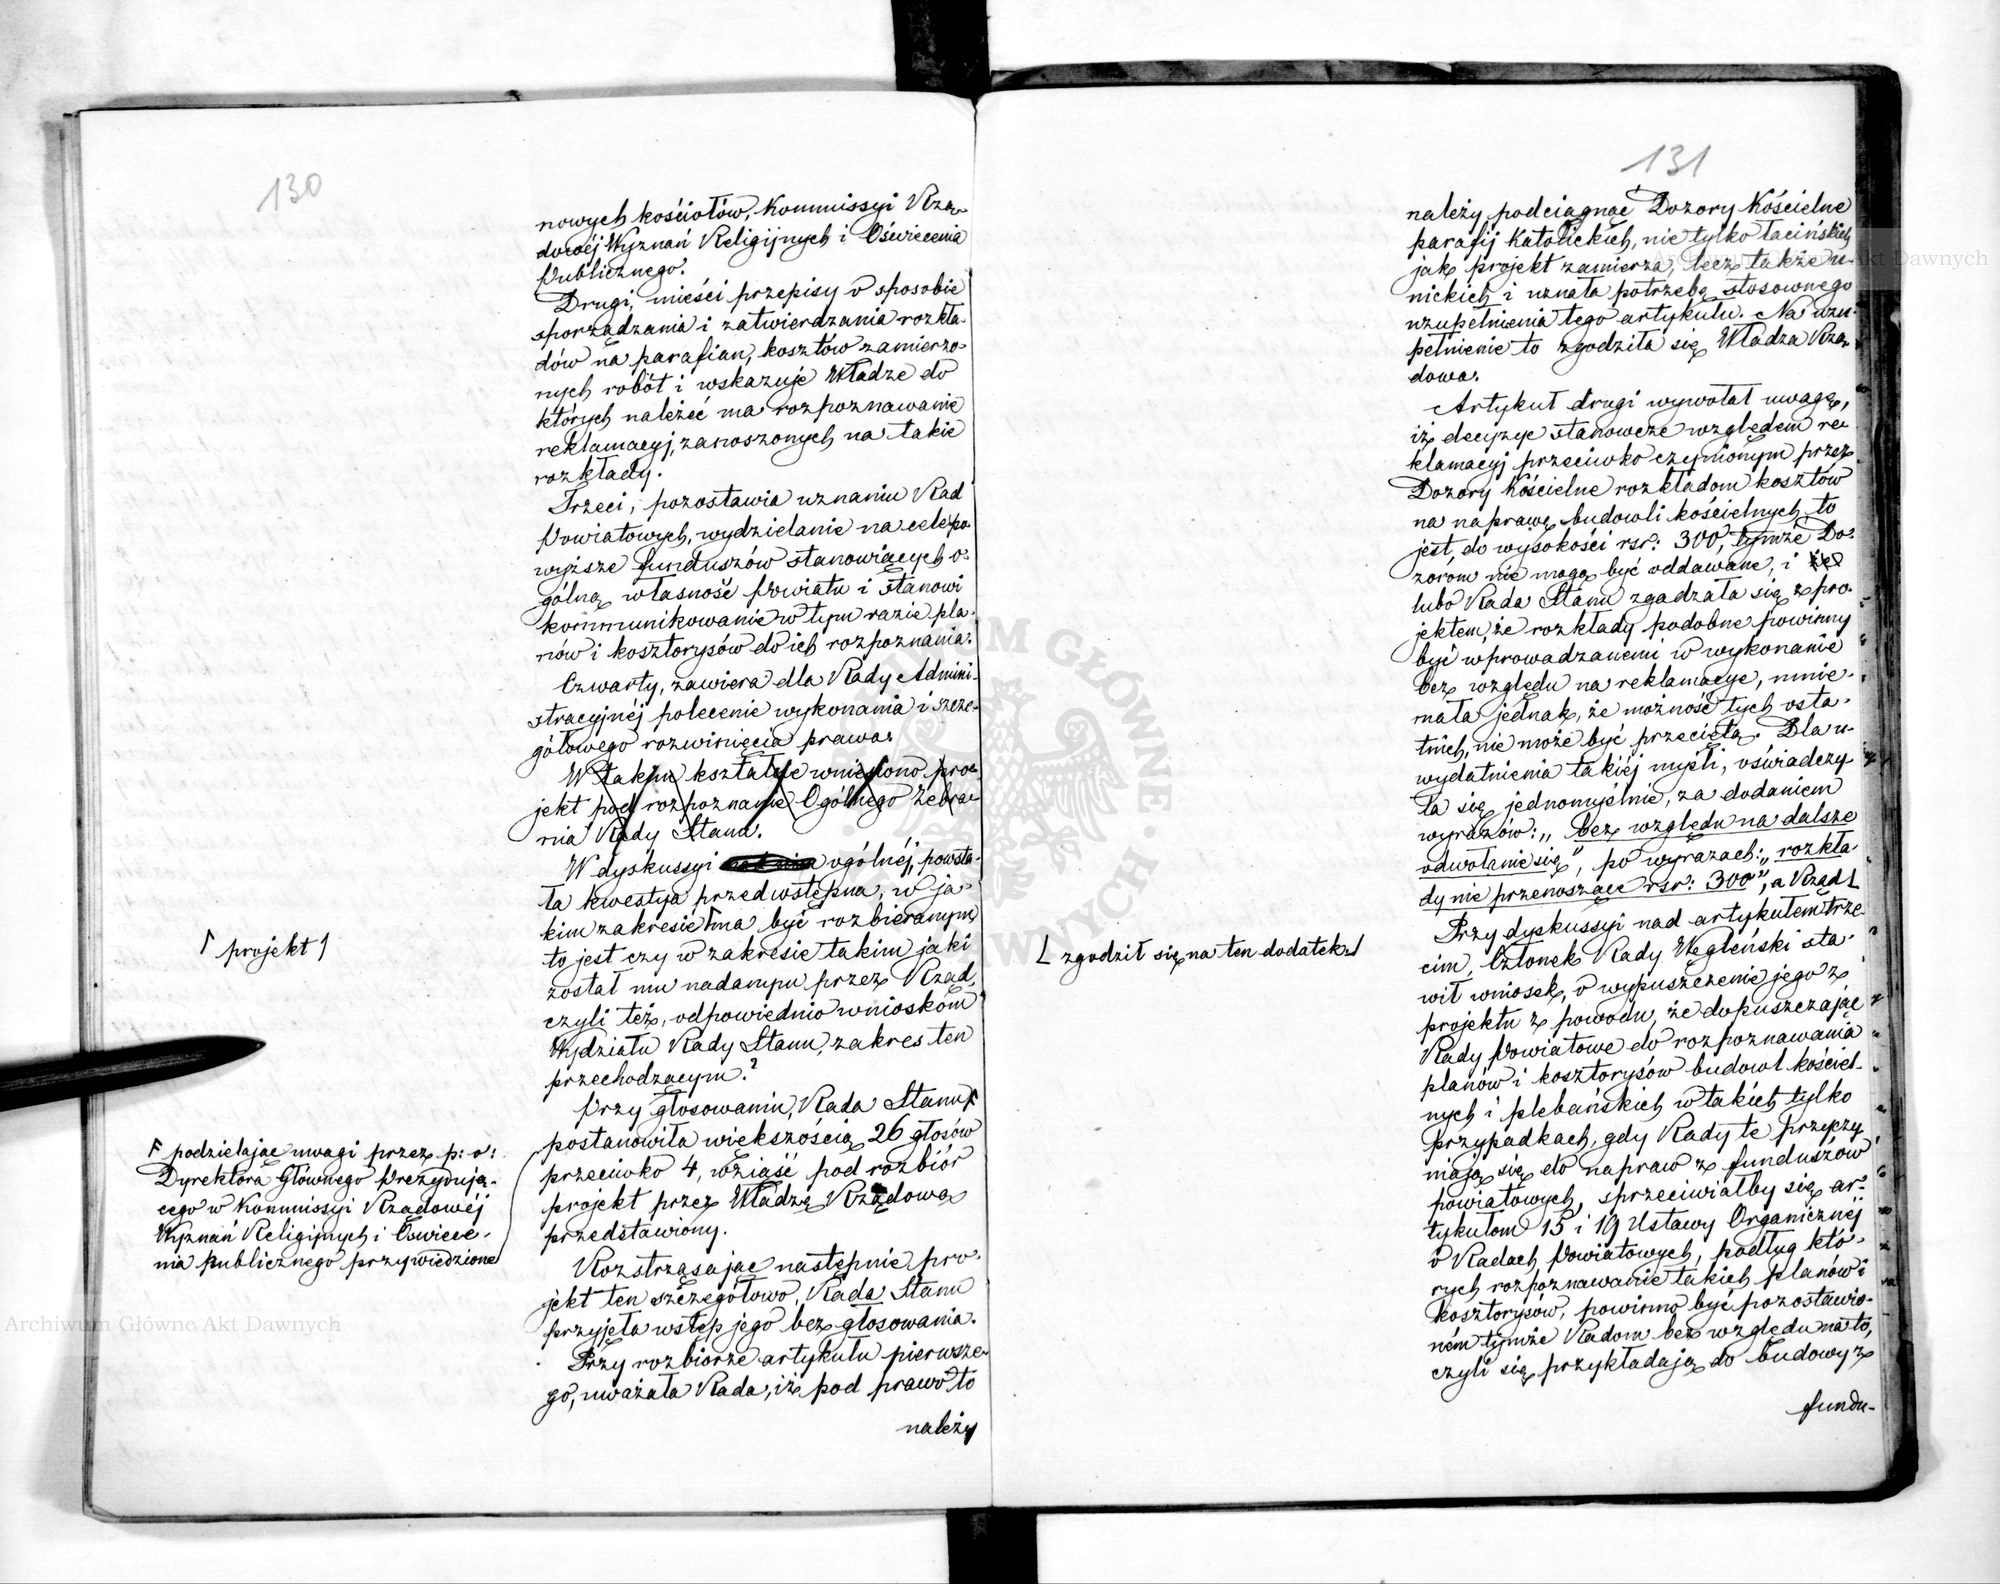 130
nowych kościołów, Kommissyi Rzą-
dowéj Wyznań Religijnych i Oświecenia
Publicznego.
Drugi, mieści przepisy o sposobie
sporządzania i zatwierdzania rozkła-
dów na parafian, kosztów zamierzo-
nych robót i wskazuje Władze do
których należeć ma rozpoznawanie
reklamacyj, zanoszonych na takie
rozkłady.
Trzeci, pozostawia uznaniu Rad
Powiatowych, wydzielanie na cele po-
wyższe funduszów stanowiących o-
gólną własność Powiatu i stanowi
kommunikowanie w tym razie pla-
nów i kosztorysów do ich rozpoznania.
Czwarty, zawiera dla Rady Admini-
stracyjnéj polecenie wykonania i szcze-
gółowego rozwinięcia prawa.
W takim kształcie wniesiono pro-
jekt pod rozpoznanie Ogólnego Zebra-
nia Rady Stanu.
W dyskussyi ogólnéj, powsta-
ła kwestya przedwstępna, w ja-
kim zakresie Γ ma być rozbieranym
to jest czy w zakresie takim jaki
został mu nadanym przez Rząd,
czyli też, odpowiednio wnioskom
Wydziału Rady Stanu, zakres ten
przechodzącym?
Przy głosowaniu, Rada Stanu Γ
postanowiła większością 26 głosów
przeciwko 4, wziąść pod rozbiór
projekt przez Władzę Rządową
przedstawiony.
Roztrząsając następnie pro-
jekt ten szczegółowo, Rada Stanu
przyjęła wstęp jego bez głosowania.
Przy rozbiorze artykułu pierwsze-
go, uważała Rada, iż pod prawo to
należy
Γ projekt
Γ podzielając uwagi przez p: o:
Dyrektora Głównego Prezydują-
cego w Kommissyi Rządowéj
Wyznań Religijnych i Oświece-
nia publicznego przywiedzione
131
należy podciągnąć Dozory Kościelne
parafij Katolickich, nie tylko łacińskich
jak projekt zamierza, lecz także u-
nickich i uznała potrzebę stosownego
uzupełnienia tego artykułu. Na uzu-
pełnienie to zgodziła się Władza Rzą-
dowa.
Artykuł drugi wywołał uwagę,
iż decyzye stanowcze względem re-
klamacyj przeciwko czynionym przez
Dozory Kościelne rozkładom kosztów
na naprawę budowli kościelnych, to
jest, do wysokości rsr: 300, tymże Do-
zorom nie mogą być oddawane, i
lubo Rada Stanu zgadzała się z pro-
jektem, że rozkłady podobne powinny
być wprowadzanemi w wykonanie
bez względu na reklamacye, mnie-
mała jednak, że możność tych osta-
tnich, nie może być przeciętą. Dla u-
wydatnienia takiéj myśli, oświadczy-
ła się jednomyślnie, za dodaniem
wyrazów: „bez względu na dalsze
odwołanie się”, po wyrazach: „rozkła-
dy nie przenoszące rsr: 300”, a Rząd L
Przy dyskussyi nad artykułem trze-
cim, Członek Rady Węgleński sta-
wił wniosek, o wypuszczenie jego z
projektu z powodu, że dopuszczając
Rady Powiatowe do rozpoznawania
planów i kosztorysów budowl kościel-
nych i plebańskich w takich tylko
przypadkach, gdy Rady te przyczy-
niają się do napraw z funduszów
powiatowych, sprzeciwiałby się ar-
tykułom 15 i 19 Ustawy Organicznéj
o Radach Powiatowych, podług któ-
rych rozpoznawanie takich planów i
kosztorysów, powinno być pozostawio-
ném tymże Radom bez względu na to,
czyli się przykładają do budowy z
fundu-
L zgodził się na ten dodatek.
Archiwum Główne Akt Dawnych
Archiwum Główne Akt Dawnych